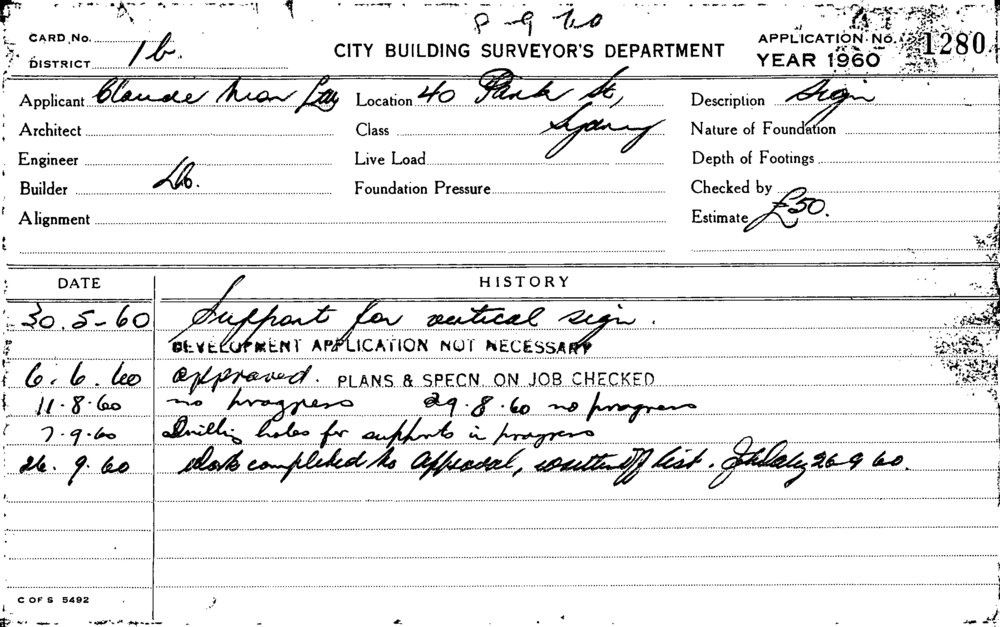 CARD No.
DISTRICT 1b
CITY BUILDING SURVEYOR'S DEPARTMENT
APPLICATION No. 1280
YEAR 1960
Applicant Claude Neon Ltd Location 40 Park St, Description Sign
Architect Class Sydney Nature of Foundation
Engineer Live Load Depth of Footings
Builder Do. Foundation Pressure Checked by
Alignment Estimate £50.
DATE HISTORY
30.5-60 Support for vertical sign.
DEVELOPMENT APPLICATION NOT NECESSARY
6.6.60 approved. PLANS & SPECN. ON JOB CHECKED
11.8.60 no progress 29.8.60 no progress
7.9.60 Drilling holes for supports in progress
26.9.60 Work completed to approval, written off list. 26 9 60.
C OF S 5492